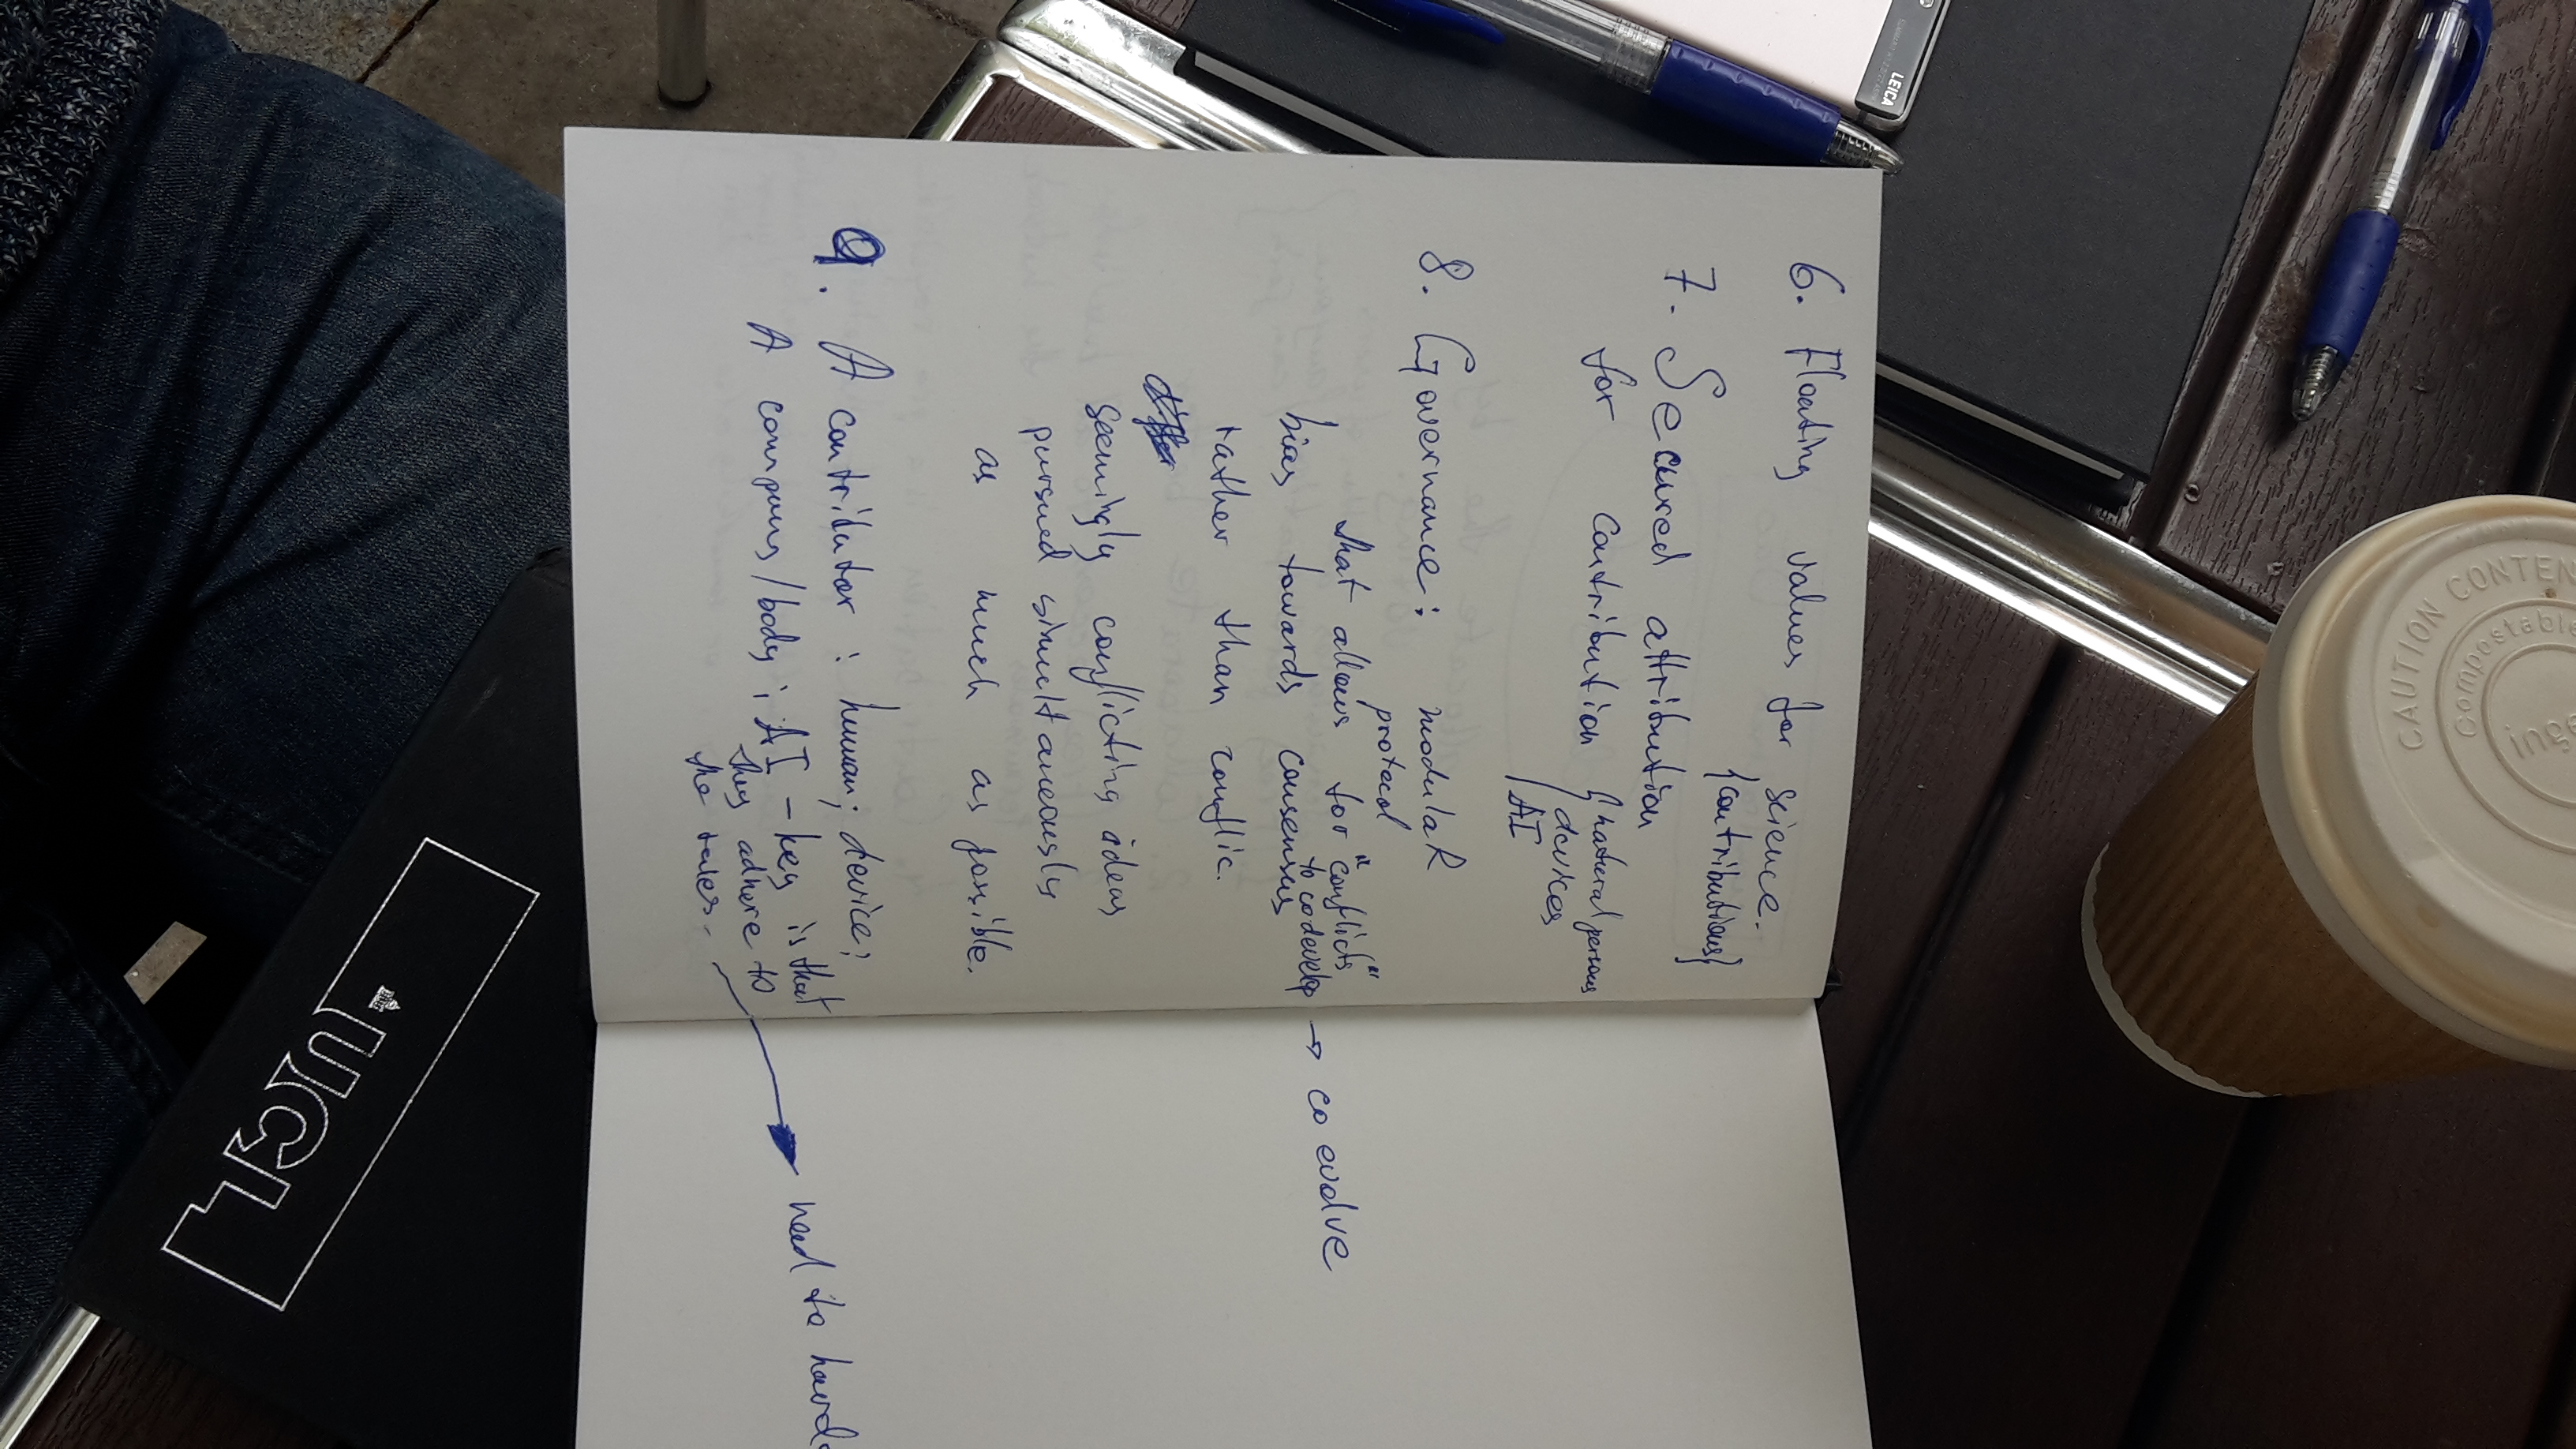 6. Floating values for science.
{contributions}
7. Secured attribution
for contribution { natural persons
devices
AI
8. Governance: modulaR
protocol
that allows for "conflicts"
to codevelop → co evolve
bias towards consensus
rather than conflic.
seemingly conflicting ideas
pursued simultaneously
as much as possible.
9. A contributor: human; device;
A company/body; AI - key is that
they adhere to
the rules.
need to hard
LEICA
CAUTION CONTEN
Compostable
inge